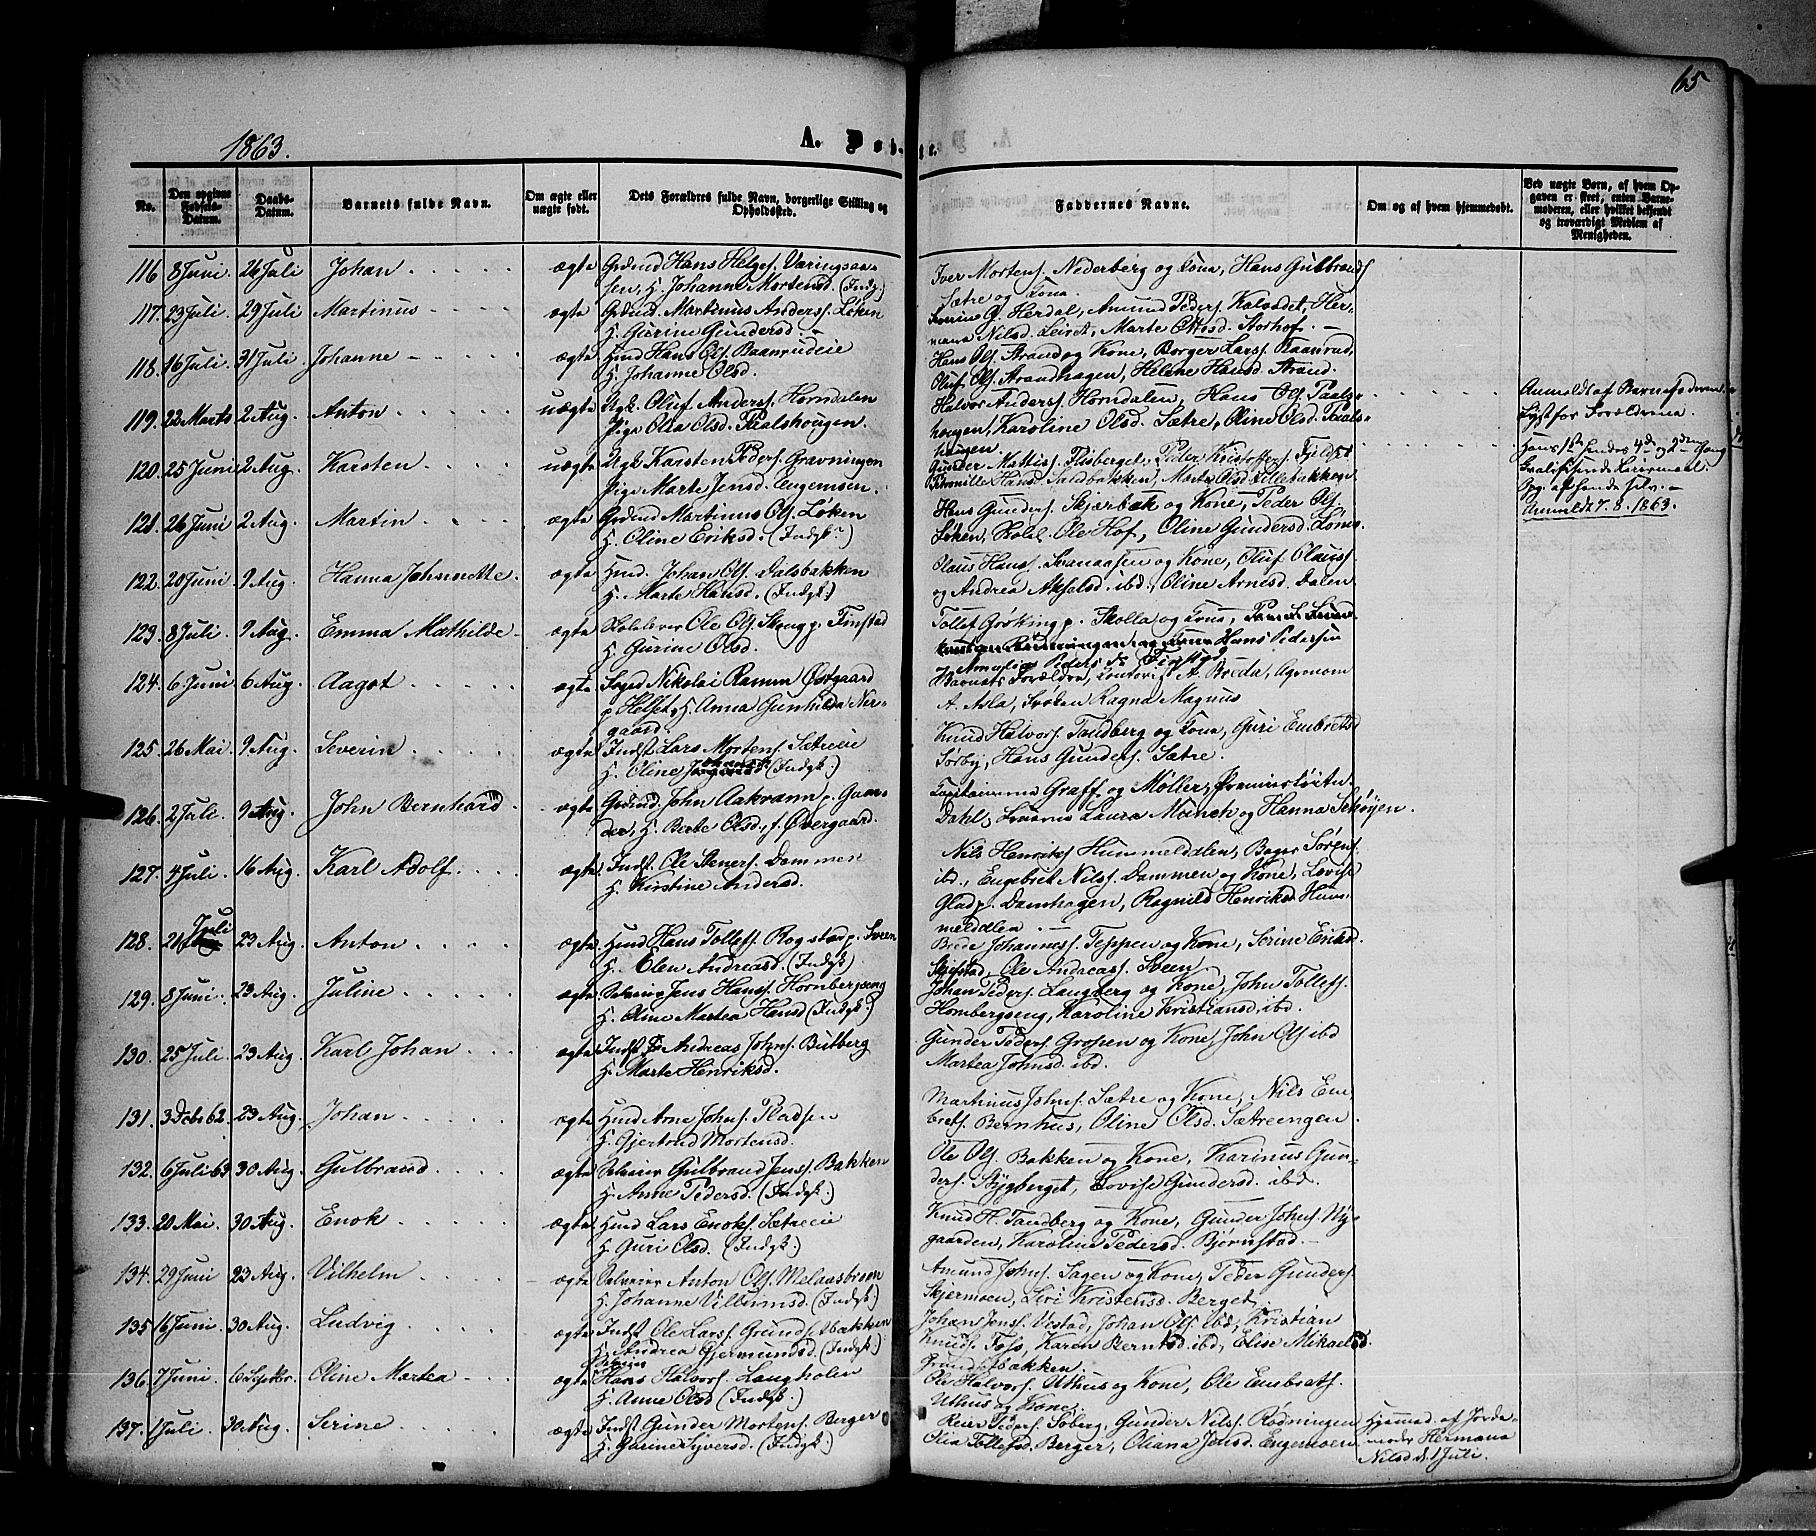 65
1863.
A. Døbte.
No.
Den opgivne Fødsels-Datum.
Daabs-Datum.
Barnets fulde Navn.
Om ægte eller uægte født.
Dets Forældres fulde Navn, borgerlige Stilling og Opholdssted.
Faddernes Navne.
Om og af hvem hjemmedøbt.
Ved uægte Børn, af hvem Opgaven er skeet, enten Barnemoderen, eller hvilket bekjendt og troværdigt Medlem af Menigheden.
116 8 Juni. 26 Juli Johan ægte Grdmd Hans Helges. Væringsaa-
sen, H. Johanne Mortensd. (Indg.)
Iver Mortens. Nederberg og Kona, Hans Gulbrands
Sætre og Kona.
117. 23 Juli. 29 Juli Martinus ægte Grdmd. Martinus Anders. Løken
H. Gurine Gundersd.
Severine G. Herdal, Amund Peders. Kalvødet, Her-
mana Nilsd. Leiret, Marte Ottesd. Storhof.
118. 16 Juli. 31 Juli. Johanne ægte Hmd Hans Ols. Baanrudeie
H. Johanne Olsd.
Hans Ols. Strand og Kone, Borger Lars. Baanrud,
Oluf Ols. Strandhagen, Helene Hansd. Strand.
119. 22 Marts 2 Aug. Anton uægte Ugk. Oluf Anders. Horndalen
Pige Olia Olsd. Paalshougen.
Halvor Anders. Horndalen, Hans Ols. Paals-
hougen, Karoline Olsd. Sætre, Oline Olsd. Paals-
hougen.
Anmeldt af Barnefaderen.
120. 25 Juni 2 Aug. Karsten uægte Ugk. Karsten Peders. Gravningen
Pige Marte Jensd. Engemoen.
Gunder Mattiss. Flisberget, Peder Kristoffers. Fjeldset
Pernille Hansd. Sandbakken, Marte Olsd. Lillebakken
Opg. af hende selv.
Anmeldt 7. 8. 1863.
121. 26 Juni 2 Aug. Martin ægte Grdmd Martinus Ols. Løken
H. Oline Eriksd. (Indgk.)
Hans Gunders. Skjærbæk og Kone, Peder Ols.
Løken, Ole Hof, Oline Gundersd. Løng
122. 20 Juni 9 Aug. Hanna Johannette. ægte Hmd. Johan Ols. Dalsbakken
H. Marte Hansd. (Indgk.)
Olaus Hans. Svenaasen og Kone, Oluf Olauss.
og Andrea Akselsd. ibd., Oline Arnesd. Dalen
123. 8 Juli. 9 Aug. Emma Mathilde ægte Ole Ols. Skoug p. Finstad
H. Gurine Olsd.
Tollef Grøking p. Skolla og Kone,
Hans Pedersen
124. 6 Juni 6 Aug. Aagot ægte Foged Nikolai Ramm Østgaard
p. Helset, H. Anna Gunhilda Ner-
gaard.
Barnets Forældre, A. Breda, Agronom
A. Asla, Frøken Ragna Magnus
125. 26 Mai 9 Aug. Severin ægte Indst. Lars Mortens. Sætreeie
H. Oline (Indgk.)
Knud Halvors. Tandberg og Kona, Guri Embretsd
Sørby, Hans Gunders. Sætre.
126. 2 Juli. 9 Aug. John Bernhard ægte Grdmd. John Aakrann p. Gam-
der, H. Berte Olsd., f. Øvergaard.
Kapitainerne Graff og Møller, Premierløitn.
Dahl, Laura Münch og Hanna Schøyen.
127. 4 Juli. 16 Aug. Karl Adolf ægte Indst. Ole Steners. Dammen
H. Kirstine Andersd.
Nils Henriks. Hummeldalen, Sørens.
ibd., Engebret Nilss. Dammen og Kone, Lovise
Glad p. Damhagen, Ragnild Henriksd. Hum-
meldalen.
128. 21 Juli 23 Aug. Anton ægte Hmd Hans Tollefs. Rogstad p. Sveen
H. Elen Andreasd. (Indgk.)
Brede Johanness. Teppen og Kone, Serine Eriksd.
Skjefstad, Ole Andreass. Sveen
129. 8 Juni 23 Aug. Juline ægte Jens Hanss. Hornbergseng
H. Oline Martea Hansd (Indgk.)
Johan Peders. Langberg og Kone, John Tollefs.
Hornbergseng, Karoline Kristiansd. ibd.
130. 25 Juli 23 Aug. Karl Johan ægte Indst Andreas Johns. Bulberg
H. Marte Henriksd.
Gunder Peders. Grosen og Kone, John Ols ibd
Martea Johnsd. ibd.
131. 3 Debr. 62. 23 Aug. Johan ægte Hmd Arne Johns. Pladsen
H. Gjertrud Mortensd.
Martinus Johns. Sætre og Kone, Nils Em-
brets. Bernhus, Oline Olsd. Sætreengen
132. 6 Juli 63 30 Aug. Gulbrand ægte Gulbrand Jens. Bakken
H. Anne Pedersd. (Indgk.)
Ole Ols Bakken og Kone, Karinus Gun-
ders. Bygberget, Lovise Gundersd. ibd.
133. 20 Mai 30 Aug. Enok ægte Hmd Lars Enoks. Sætreeie
H. Guri Olsd. (Indgk.)
Knud H. Tandberg og Kone, Gunder Johns. Ny-
gaarden, Karoline Pedersd. Bjørnstad.
134. 29 Juni 23 Aug. Vilhelm ægte Anton Ols. Melaasbraen
H. Johanne Vilhelmsd. (Indgk.)
Amund Johns. Sagen og Kone, Peder Gunders.
Skjermoen, Siri Kristensd. Berget
135 16 Juni 30 Aug. Ludvig ægte Indst Ole Lars. Grundsetbakken
H. Andrea Gjermundsd. (Indgk.)
Johan Jens. Vestad, Johan Ols. ibd, Kristian
Knuds. Foss, Karen Berntsd. ibd, Elise Mikaelsd.
Grundsetbakken.
136. 7 Juni 6 Septbr. Oline Martea ægte Hans Halvors. Langholen
H. Anne Olsd (Indgk.)
Ole Halvors. Uthus og Kone, Ole Embrets.
Uthus og Kone.
137. 1 Juli 30 Aug. Serine ægte Indst. Gunder Mortens. Berger
H. Karine Syversd. (Indgk.)
Reier Peders. Søberg, Gunder Nilss. Rødningen
Olia Tollefsd. Berger, Oliana Jensd. Engemoen
Hjemmed. af Jorde-
moder Hermana
Nilsd. d. 1 Juli.